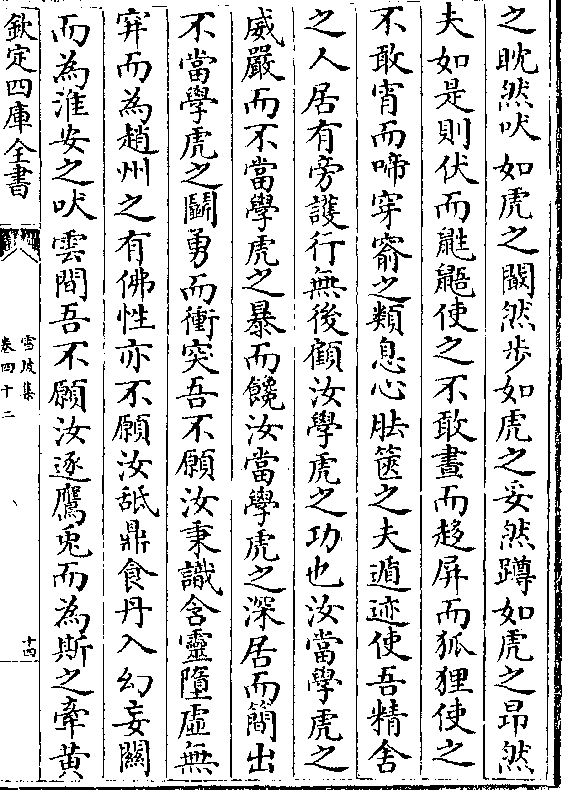 之眈然吠如虎之闞然步如虎之妥然蹲如虎之昂然
夫如是則伏而鼪鼯使之不敢晝而趍屏而狐狸使之
不敢宵而啼穿窬之類息心胠篋之夫遁迹使吾精舍
之人居有旁護行無後顧汝學虎之功也汝當學虎之
威嚴而不當學虎之暴而饞汝當學虎之深居而簡出
不當學虎之鬭勇而衝突吾不願汝秉識含靈墮虚無
穽而為趙州之有佛性亦不願汝舐鼎食丹入幻妄闗
而為淮安之吠雲間吾不願汝逐鷹兎而為斯之牽黄
欽定四庫全書
雪坡集
卷四十二
十四